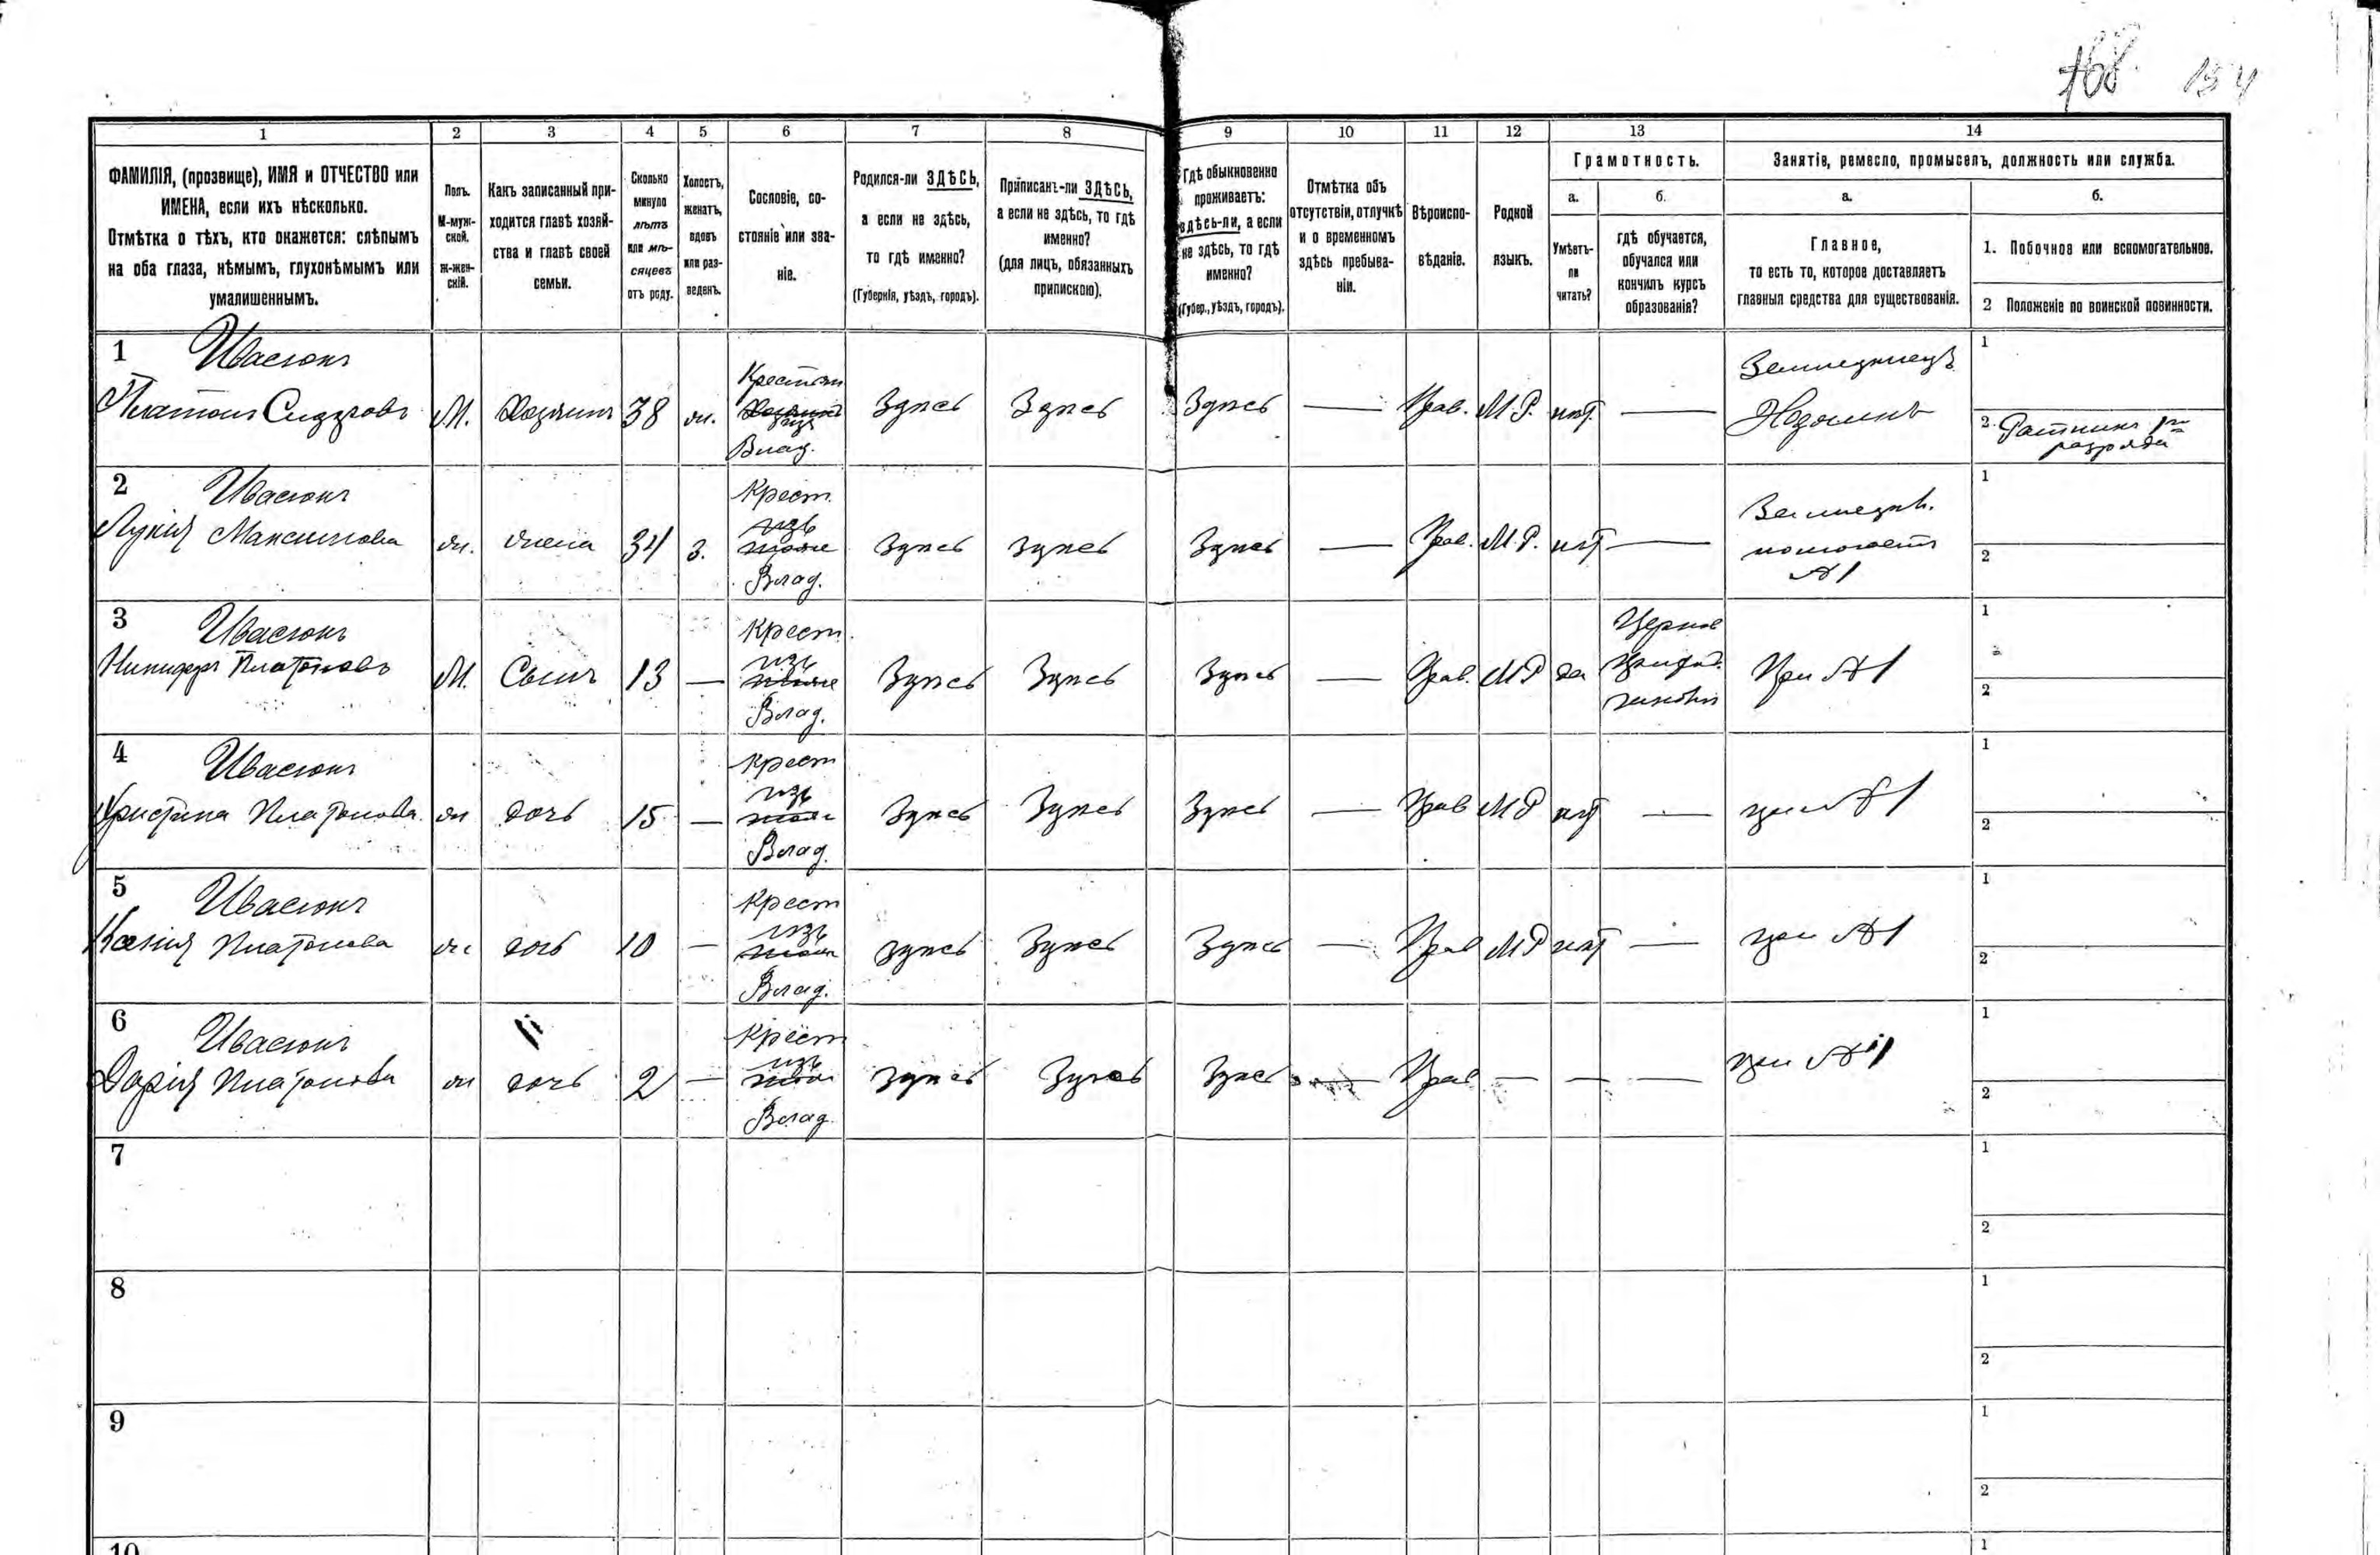 168 154
1 2 3 4 5 6 7 8 9 10 11 12 13 14
ФАМИЛІЯ, (прозвище), ИМЯ и ОТЧЕСТВО или
ИМЕНА, если ихъ нѣсколько.
Отмѣтка о тѣхъ, кто окажется: слѣпымъ
на оба глаза, нѣмымъ, глухонѣмымъ или
умалишеннымъ.
Полъ.
М-муж-
ской.
Ж-жен-
скій.
Какъ записанный при-
ходится главѣ хозяй-
ства и главѣ своей
семьи.
Сколько
минуло
лѣтъ
или мѣ-
сяцевъ
отъ роду.
Холостъ,
женатъ,
вдовъ
или раз-
веденъ.
Сословіе, со-
стояніе или зва-
ніе.
Родился-ли ЗДѢСЬ,
а если не здѣсь,
то гдѣ именно?
(Губернія, уѣздъ, городъ).
Приписанъ-ли ЗДѢСЬ,
а если не здѣсь, то гдѣ
именно?
(для лицъ, обязанныхъ
припискою).
Гдѣ обыкновенно
проживаетъ:
здѣсь-ли, а если
не здѣсь, то гдѣ
именно?
(Губер., уѣздъ, городъ).
Отмѣтка объ
отсутствіи, отлучкѣ
и о временномъ
здѣсь пребыва-
ніи.
Вѣроиспо-
вѣданіе.
Родной
языкъ.
Грамотность.
а.
Умѣетъ-
ли
читать?
б.
гдѣ обучается,
обучался или
кончилъ курсъ
образованія?
Занятіе, ремесло, промыселъ, должность или служба.
а.
Главное,
то есть то, которое доставляетъ
главныя средства для существованія.
б.
1. Побочное или вспомогательное.
2 Положеніе по воинской повинности.
1 Ивасюкъ
Платонъ Сидоровъ М. Хозяинъ 38 ж.
Крестьян
изъ
Влад.
Здѣсь Здѣсь Здѣсь — Прав. М.Р. нѣт —
Земледѣлецъ
Хозяинъ
1
2. Ратникъ 1го
разряда
2 Ивасюкъ
Лукія Максимова ж. жена 34 з.
Крест.
изъ
Влад.
Здѣсь здѣсь Здѣсь — Прав. М.Р. нѣт —
Земледѣл.
помогает
№ 1
1
2
3 Ивасюкъ
Никифоръ Платоновъ М. Сынъ 13 —
Крест.
изъ
Влад.
Здѣсь Здѣсь Здѣсь — Прав. М.Р. да
При № 1
1
2
4 Ивасюкъ
Христина Платонова ж дочь 15 —
Крест
изъ
Влад.
Здѣсь Здѣсь Здѣсь — Прав М Р нѣт —
при № 1
1
2
5 Ивасюкъ
Ксенія Платонова ж дочь 10 —
Крест
изъ
Влад.
здѣсь Здѣсь Здѣсь — Прав М Р нѣт —
при № 1
1
2
6 Ивасюкъ
Дарія Платонова ж дочь 2 —
Крест
изъ
Влад.
здѣсь Здѣсь Здѣсь — Прав — — —
при № 1
1
2
7
1
2
8
1
2
9
1
2
10
1